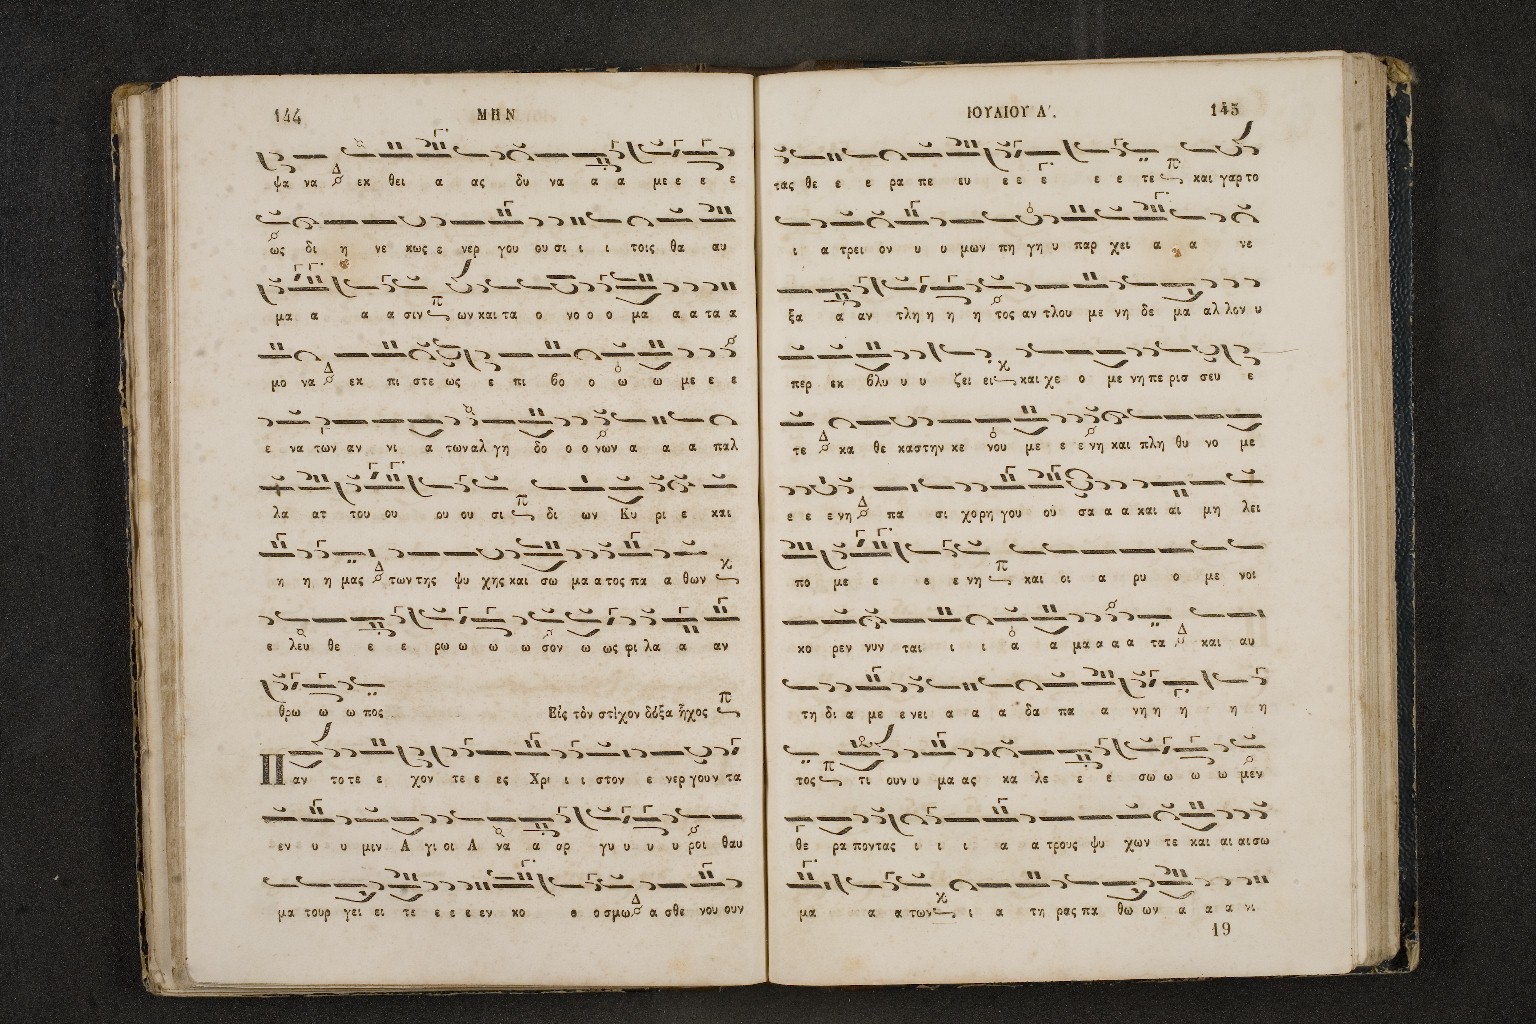 144
ΜΗΝ
ψα να εκ θει α ας δυ να α α με ε ε ε
ως δι η νε κως ε νερ γου ου σι ι ι τοις θα αυ
μα α α α σιν ων και τα ο νο ο ο μα α α τα α
μο να εκ πι στε ως ε πι βο ο ω ω με ε ε
ε να των αν νι α των αλ γη δο ο ο νων α α α παλ
λα ατ του ου ου ου σι δι ων Κυ ρι ε και
η η η μας των της ψυ χης και σω μα α τος πα α θων
ε λευ θε ε ε ρω ω ω ω σον ω ως φι λα α αν
θρω ω ω πος Εἰς τὸν στίχον δόξα ἦχος
Παν το τε ε χον τε ε ες Χρι ι ι στον ε νερ γουν τα
εν υ υ μιν Α γι οι Α να α αρ γυ υ υ υ ροι θαυ
μα τουρ γει ει τε ε ε ε εν κο ο ο σμω α σθε νου ουν
ΙΟΥΛΙΟΥ Α΄.
145
τας θε ε ε ρα πε ευ ε ε ε ε ε τε και γαρ το
ι α τρει ον υ υ μων πη γη υ παρ χει α α νε
ξα α αν τλη η η η τος αν τλου με νη δε μα αλ λον υ
περ εκ βλυ υ υ ζει ει και χε ο με νη πε ρισ σευ ε
τε κα θε καστην κε νου με ε ε νη και πλη θυ νο με
ε ε ε νη πα σι χορη γου ου σα α α και αι μη λει
πο με ε ε ε νη και οι α ρυ ο με νοι
κο ρεν νυν ται ι ι α α μα α α α τα και αυ
τη δι α με ε νει α α α δα πα α νη η η η η
τος τι ουν υ μα ας κα λε ε ε σω ω ω ω μεν
θε ρα ποντας ι ι ι α α τρους ψυ χων τε και αι αι σω
μα α α των ι α τη ρας πα θω ων α α α νι
19